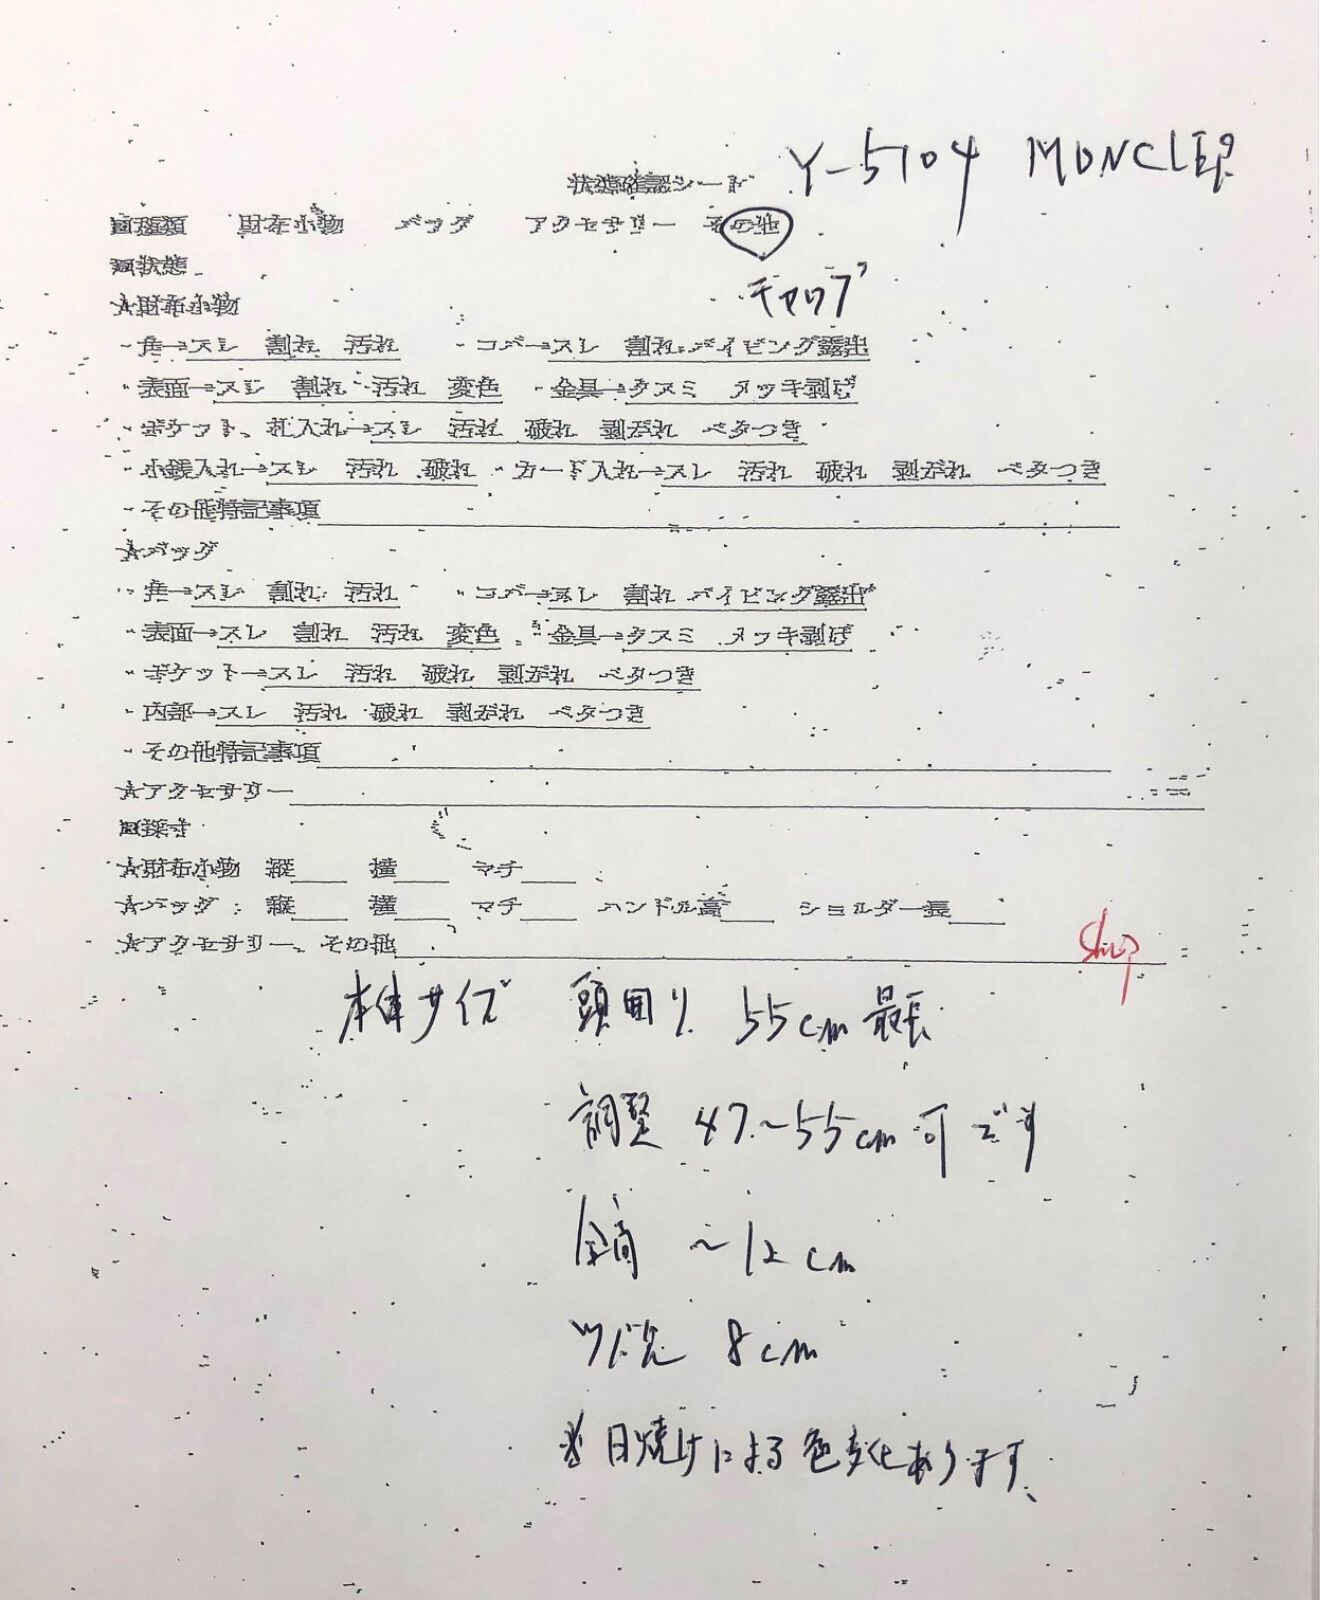 Y-5104 MONCLER
状態確認シート
□種類 財布小物 バッグ アクセサリー その他
□状態
キャップ
★財布小物
・角→スレ 割れ 汚れ ・コバ→スレ 割れ パイピング露出
・表面→スレ 割れ 汚れ 変色 ・金具→クスミ メッキ剥げ
・ポケット、札入れ→スレ 汚れ 破れ 剥がれ ベタつき
・小銭入れ→スレ 汚れ 破れ ・カード入れ→スレ 汚れ 破れ 剥がれ ベタつき
・その他特記事項
★バッグ
・角→スレ 割れ 汚れ ・コバ→スレ 割れ パイピング露出
・表面→スレ 割れ 汚れ 変色 ・金具→クスミ メッキ剥げ
・ポケット→スレ 汚れ 破れ 剥がれ ベタつき
・内部→スレ 汚れ 破れ 剥がれ ベタつき
・その他特記事項
★アクセサリー
□採寸
★財布小物 縦 横 マチ
★バッグ : 縦 横 マチ ハンドル高 ショルダー長
★アクセサリー、その他
本体サイズ 頭囲り 55cm 最長
調整 47~55cm可です
全高 ~12cm
ツバ先 8cm
※日焼けによる色変化あります、